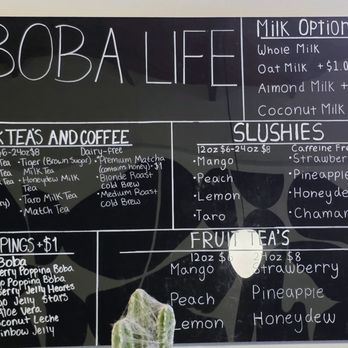 BOBA LIFE
Milk Option
Whole Milk
Oat Milk + $1.0
Almond Milk +
Coconut Milk
K TEA'S AND COFFEE
6-24oz $8
Dairy-free
Tea
• Tiger (Brown Sugar)
Milk Tea
• Honeydew Milk
Tea
• Taro Milk Tea
• Match Tea
• Premium Matcha
(contains honey) +$1
• Blonde Roast
Cold Brew
• Medium Roast
Cold Brew
SLUSHIES
12oz $6-24oz $8
Caffeine Fre
• Mango
• Peach
• Lemon
• Taro
• Strawber
• Pineapple
• Honeydew
• Chaman
PINGS +$1
Boba
erry Popping Boba
o Popping Boba
erry Jelly Hearts
o Jelly Stars
Aloe Vera
oconut Leche
inbow Jelly
FRUIT TEA'S
12oz $6 24oz $8
Mango
Peach
Lemon
Strawberry
Pineapple
Honeydew